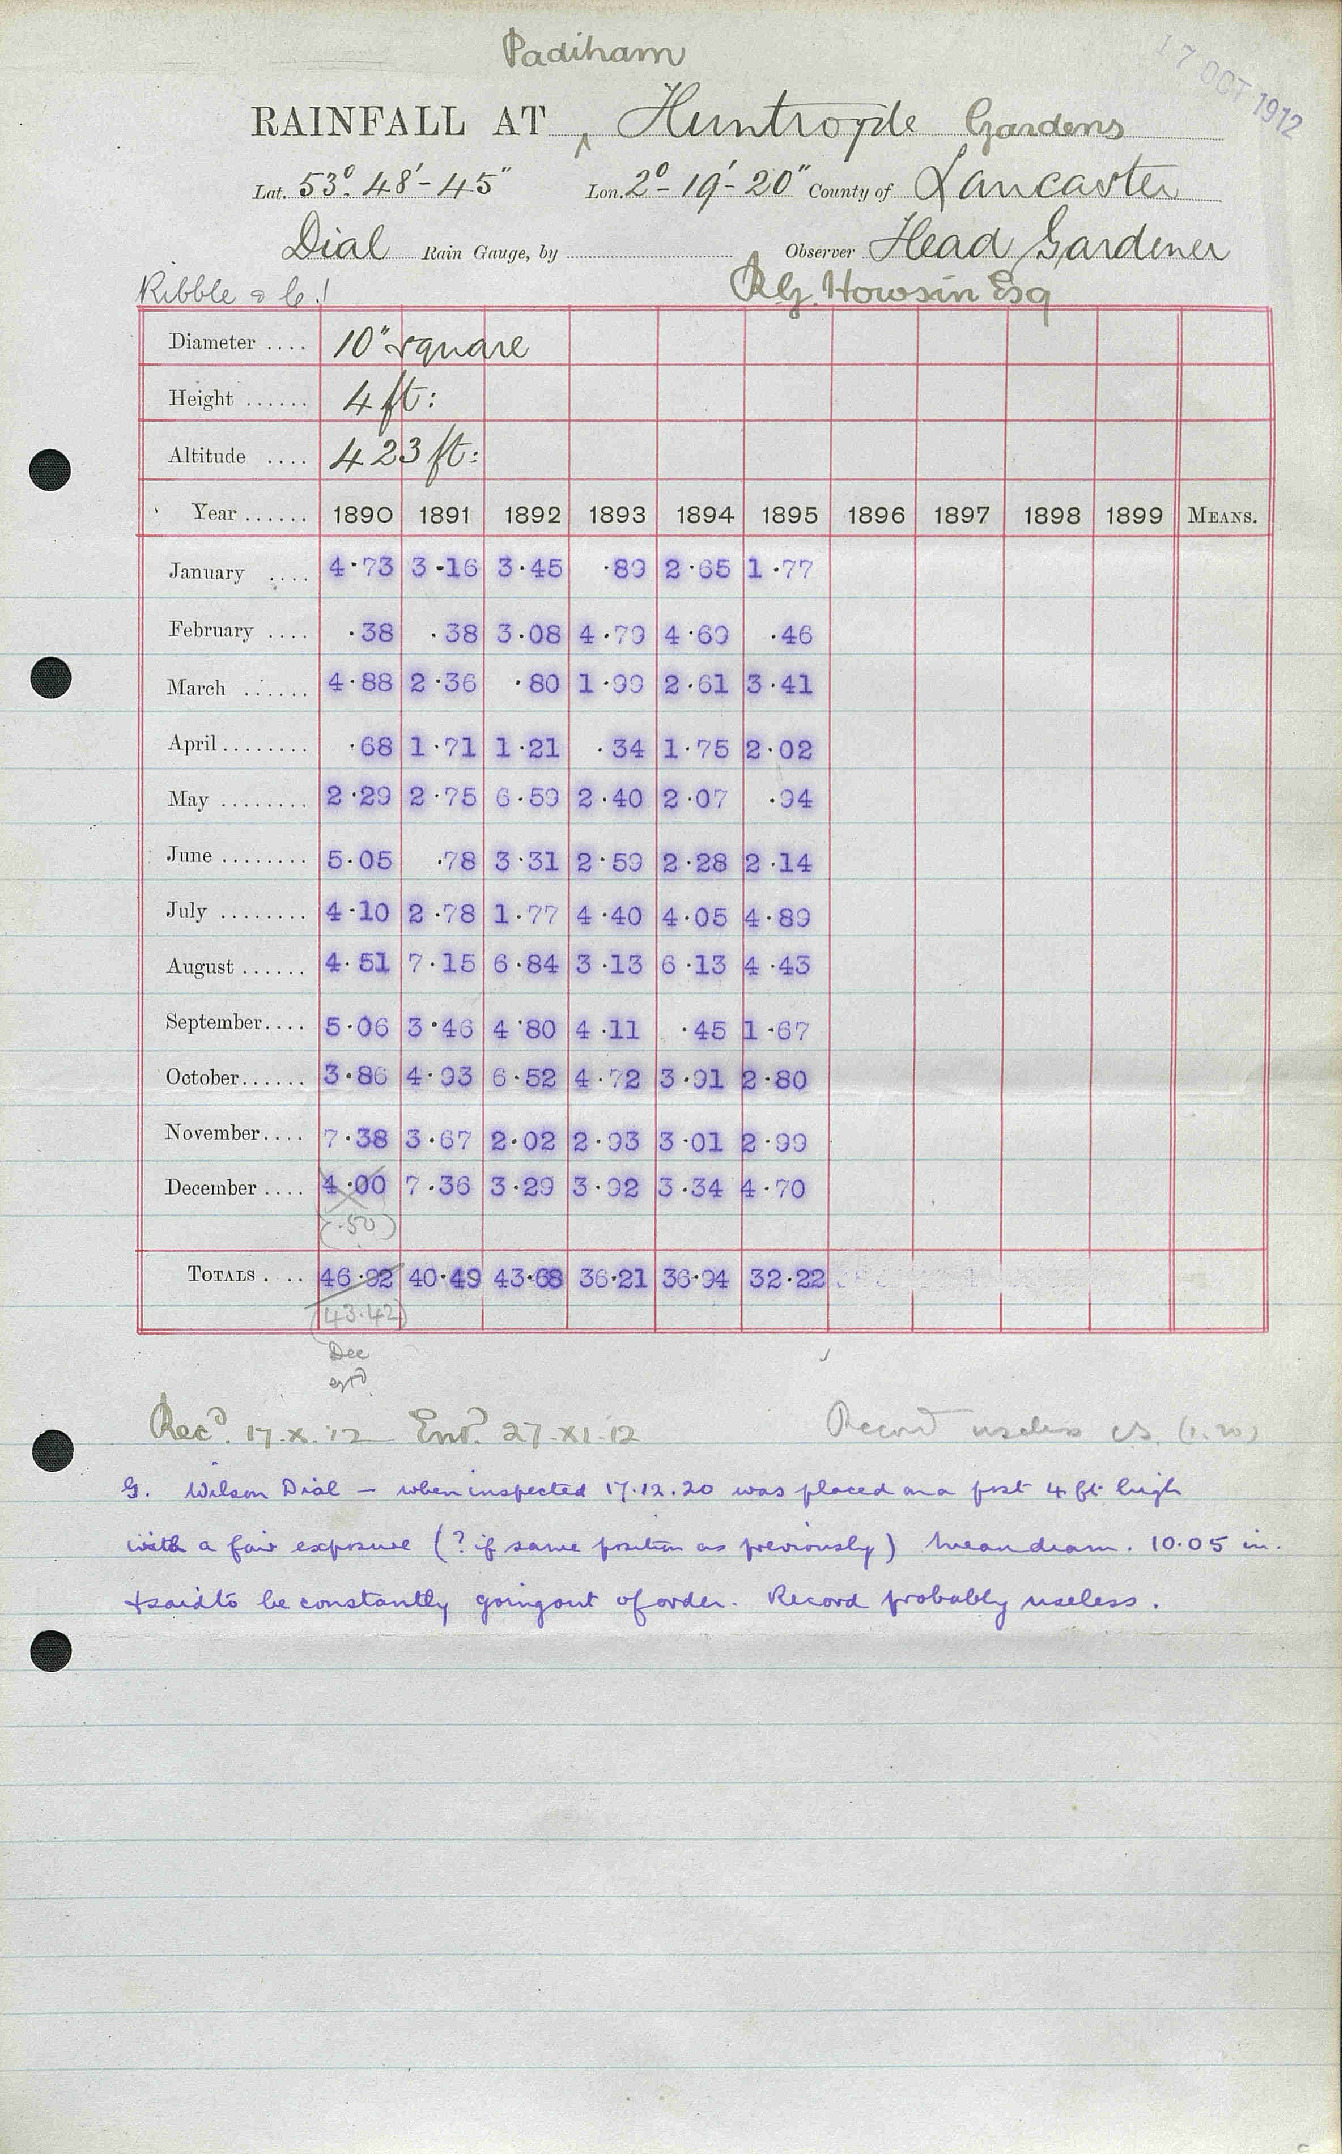 Padiham
17 OCT 1912
RAINFALL AT Huntroyde Gardens
Lat. 53° 48' - 45" Lon. 2° - 19' - 20" County of Lancaster
Dial Rain Gauge, by Observer Head Gardener
Ribble R.G. Howsin Esq
Diameter .... 10" square
Height ...... 4 ft:
Altitude .... 423 ft:
Year ...... 1890 1891 1892 1893 1894 1895 1896 1897 1898 1899 MEANS.
January .... 4.73 3.16 3.45 .89 2.65 1.77
February .... .38 .38 3.08 4.79 4.69 .46
March ...... 4.88 2.36 .80 1.99 2.61 3.41
April ........ .68 1.71 1.21 .34 1.75 2.02
May ........ 2.29 2.75 6.59 2.40 2.07 .94
June ........ 5.05 .78 3.31 2.59 2.28 2.14
July ........ 4.10 2.78 1.77 4.40 4.05 4.89
August ...... 4.51 7.15 6.84 3.13 6.13 4.43
September.... 5.06 3.46 4.80 4.11 .45 1.67
October...... 3.86 4.93 6.52 4.72 3.91 2.80
November.... 7.38 3.67 2.02 2.93 3.01 2.99
December .... 4.00 7.36 3.29 3.92 3.34 4.70
(.50)
TOTALS .... 46.92 40.49 43.68 36.21 36.94 32.22
(43.42)
Dec
Recd. 17.X.12 Entd. 27.XI.12 Record useless
G. Wilson Dial - when inspected 17.12.20 was placed on a post 4 ft high
with a fair exposure (? if same position as previously) mean diam. 10.05 in.
& said to be constantly going out of order. Record probably useless.